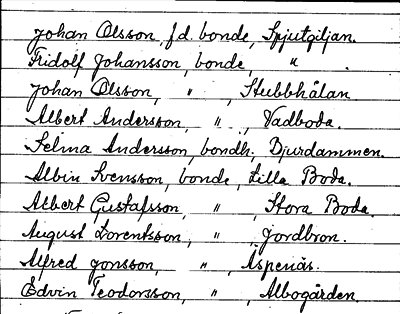 Johan Olsson, f.d. bonde, Spjutgiljan.
Fridolf Johansson, bonde, " .
Johan Olsson, " , Stubbhålan
Albert Andersson, " , Vadboda.
Selma Andersson, bondh. Djurdammen.
Albin Svensson, bonde, Lilla Boda.
Albert Gustafsson, " , Stora Boda.
August Lorentsson, " , Jordbron.
Alfred Jonsson, " , Äspenäs.
Edvin Teodorsson, " , Albogården.